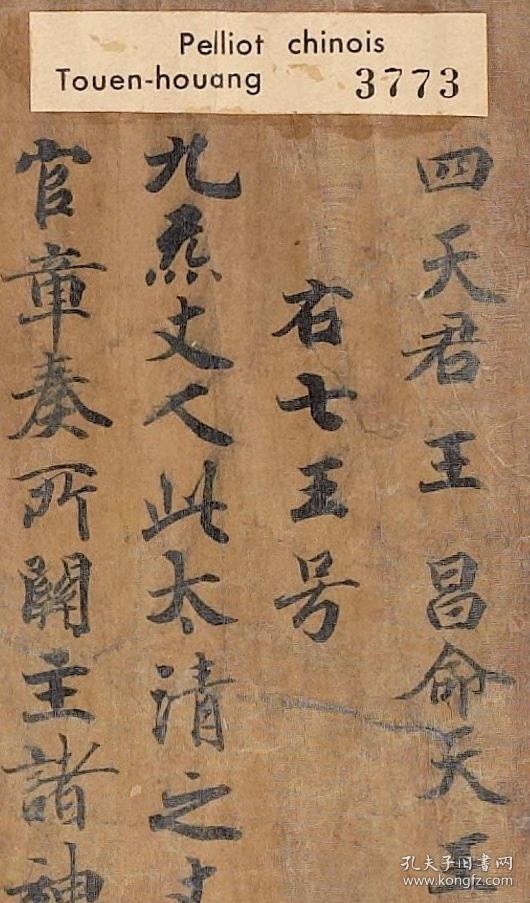 Pelliot chinois
Touen-houang 3773
四天君王昌命天王
右七王号
九炁丈人此太清之
官章奏所關主諸神
孔夫子旧书网
www.kongfz.com